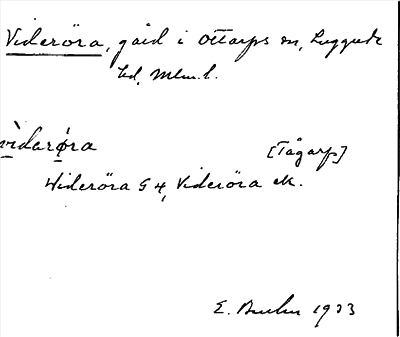 Videröra, gård i Ottarps sn, Luggude
hd, Mlm.l.
vìdarø̀ra [Tågarp]
Videröra G 4, Videröra ek.
E. Buhr 1933